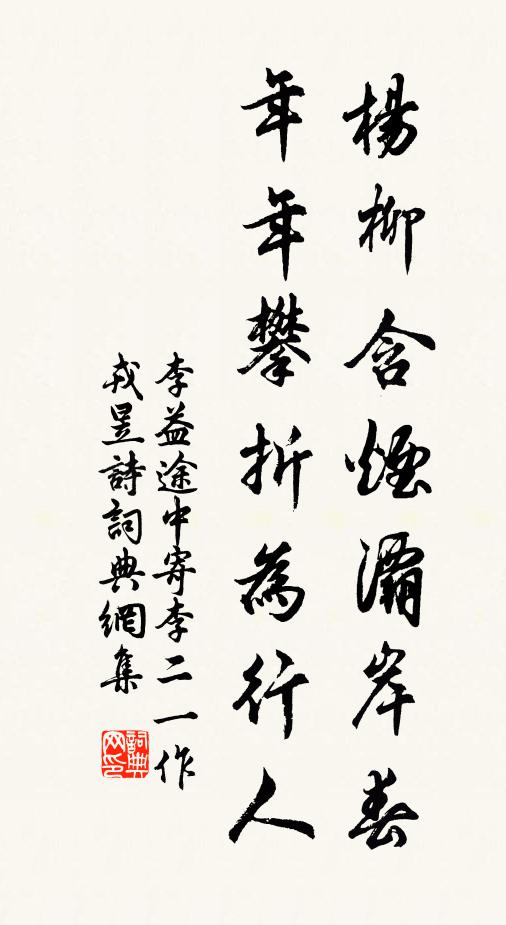 楊柳含煙灞岸春
年年攀折為行人
李益途中寄李二一作
戎昱詩詞典網集
詞典网印